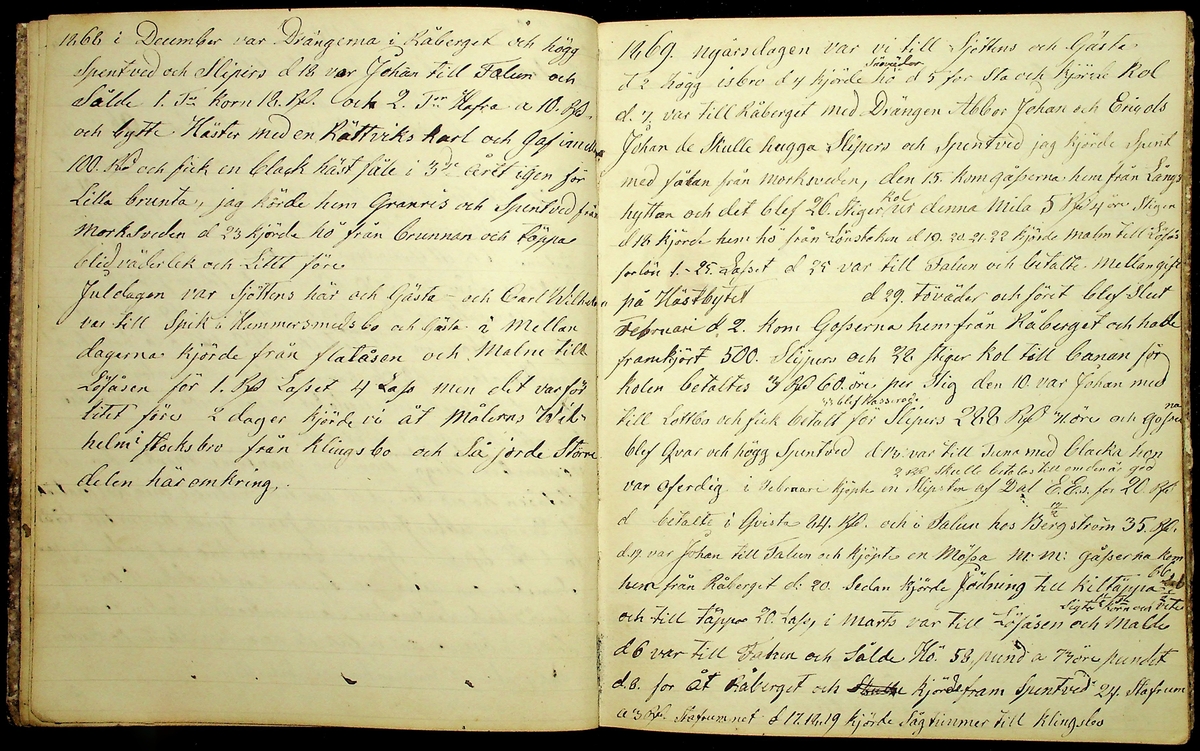 1868 i December var Drängerna i Råberget och högg
Spentved och Slipers d 18 var Johan till Falun och
Sålde 1. Tn Korn 18. Rd. och 2. Tn Hafra a 10. Rd.
och bytte Häster med en Rättviks karl och Gaf imellan
100. Rd och fick en black häst fåle i 3de året igen för
Lilla brunta, jag körde hem Granris och Spentved från
Morksveden d 23 kjörde hö från brunnan och täppa
blidväderlek och Litet före
Juldagen var Sjöttens här och Gästa och Carl Wilhelm
var till Spik i Hammersmedsbo och Gästa i Mellan
dagerna kjörde från flatåsen och Malm till
Löjåsen för 1. Rd Lasset 4 Lass men det var för
litet före 2 dager kjörde vi åt Målerns Wil-
helm Stocksbro från Klingsbo och Så jorde Större
delen här omkring.
1869. nyårsdagen var vi till Sjöttens och Gästa
d 2 högg isbro d 4 kjörde hö d 5 for Sta och kjörde Kol
d. 7. var till Råberget med Drängen Abbor Johan och Erigols
Johan de Skulle hugga Slipers och Spentved jag kjörde Spint
med från Morksveden, den 15. kom gåsserna hem från Lång-
hyttan och det blef 26. Stiger kol ur denna Mila 5 Rd 4 öre Stigen
d 16 kjörde hem hö från d 19. 20. 21. 22 kjörde malm till Löjås
forlön 1.-25. Lasset d 25 var till Falun och betalte Mellangift
på Hästbytet d 29. töväder och föret blef Slut
Februari d 2. kom Gosserna hem från Råberget och hade
framkjört 500. Slipers och 32 stiger Kol till banan för
kolen betaltes 3 Rd 60. öre per Stig den 10 var Johan med
till Lottbo och fick betalt för Slipers 288 Rd öre och Gosserna
blef Qvar och högg Spentved d var till Tuna med blacka hon
var oferdig i Februari kjöpte en Slipsten af Dal E.Es. for 20. Rd
2 Rd Skulle betales till om den är god
d betalte i Qvista 44. Rd. och i Falun hos Bergström 35. Rd.
d. var Johan till Falun och kjöpte en Mössa m: m: gåsserna kom
hem från Råberget d: 20. Sedan kjörde Jödning till Killtäppa
och till täppo 20. Lass, i Marts var till Löjåsen och Malde
Sigte Korn och
d 6 var till Falun och Sålde Hö. 58. pund a 75 öre pundet
d. 8. for åt Råberget och kjörde fram Spentved 24. Stafrum
a 3 Rd. Stafrummet d 17. 18. 19 kjörde Sågtimmer till Klingsbo